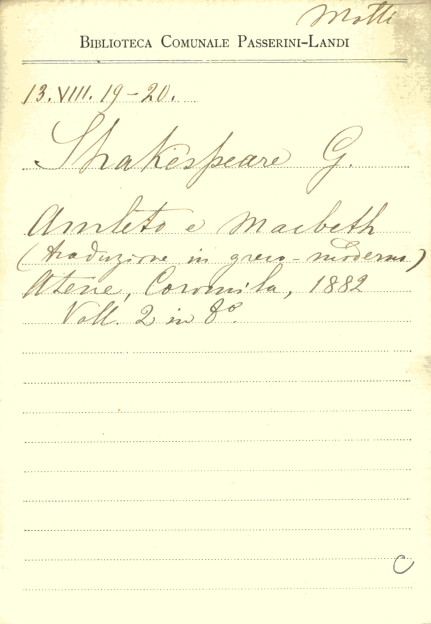 Motti
BIBLIOTECA COMUNALE PASSERINI-LANDI
13. VIII. 19-20.
Shakespeare G.
Amleto e Macbeth
(traduzione in greco-moderno)
Atene, Coromila, 1882
Voll. 2 in 8°.
C